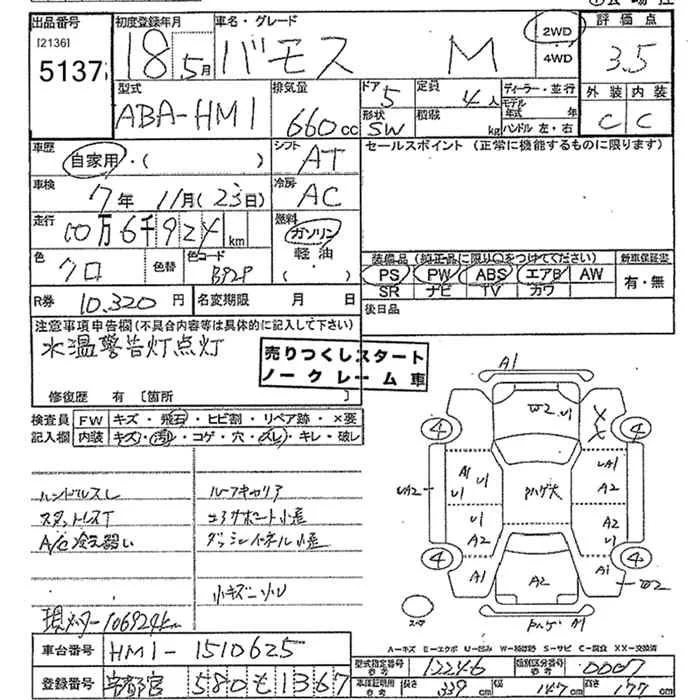 出品番号 [2136] 5137
初度登録年月 18年 5月
車名・グレード バモス M
2WD
4WD
評価点 3.5
外装 内装
C C
型式 ABA-HM1
排気量 660cc
ドア 5
形状 SW
定員 4人
積載 kg
ディーラー・並行
モデル年式 年
ハンドル 左・右
車歴 自家用・( )
シフト AT
セールスポイント (正常に機能するものに限ります)
車検 7年 11月(23日)
冷房 AC
走行 10万6千924km
燃料 ガソリン
軽油
( )
色 クロ 色替 色コード B92P
装備品 (純正品に限り○をつけてください)
PS PW ABS エアB AW
SR ナビ TV カワ
新車保証書
有・無
R券 10,320円
名変期限 月 日
後日品
注意事項申告欄(不具合内容等は具体的に記入して下さい)
水温警告灯点灯
売りつくしスタート
ノークレーム車
修復歴 有 [箇所
検査員記入欄
FW キズ・飛石・ヒビ割・リペア跡・×要
内装 キズ・汚れ・コゲ・穴・スレ・キレ・破レ
ハンドルスレ
ルーフキャリア
スタットレスT
A/C冷え弱い
小キズ
現メーター106924km
A1
W2 U1
4 4
A1 U1 U1
UA2
U1 A2
A1
ハゲ大
UA1 A2
A2 U1
A1
W2
A2
4 4
スペア
A=キズ E=エクボ U=凹み W=補修跡 S=サビ C=腐食 XX=交換済
車台番号 HM1-1510625
登録番号 宇都宮 580 も 1367
型式指定番号 参考 12246
類別区分番号 参考 0007
車体証明用 参考 長さ 339cm
幅 147cm
高さ 177cm